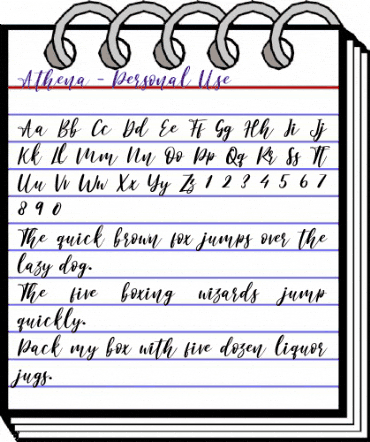 Athena - Personal Use
Aa Bb Cc Dd Ee Ff Gg Hh Ii Jj
Kk Ll Mm Nn Oo Pp Qq Rr Ss Tt
Uu Vv Ww Xx Yy Zz 1 2 3 4 5 6 7
8 9 0
The quick brown fox jumps over the
lazy dog.
The five boxing wizards jump
quickly.
Pack my box with five dozen liquor
jugs.